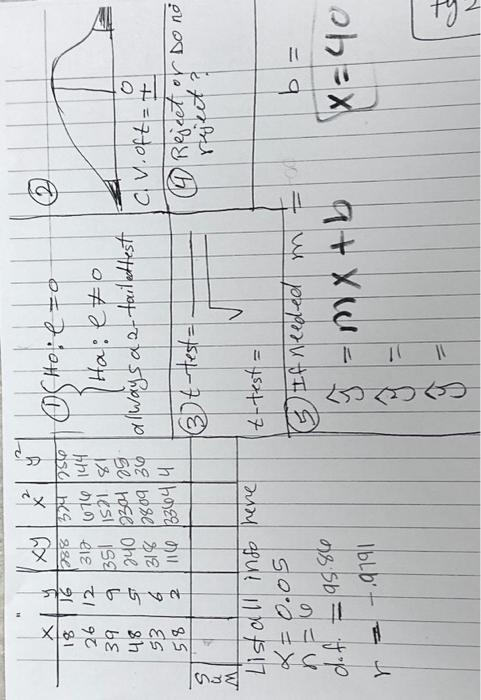 x y xy x² y²
18 16 288 324 256
26 12 312 676 144
39 9 351 1521 81
48 5 240 2304 25
53 6 318 2809 36
58 2 116 3364 4
Sum
List all info here
α = 0.05
n = 6
d.f. = 95.86
r = -.9791
① { Ho: ρ = 0
{ Ha: ρ ≠ 0
always a 2-tailed test
②
C.V. of t = ± 0
③ t-test = √
t-test =
④ Reject or Do not
reject?
⑤ If needed m = b =
ŷ = mx + b x = 40
ŷ =
ŷ =